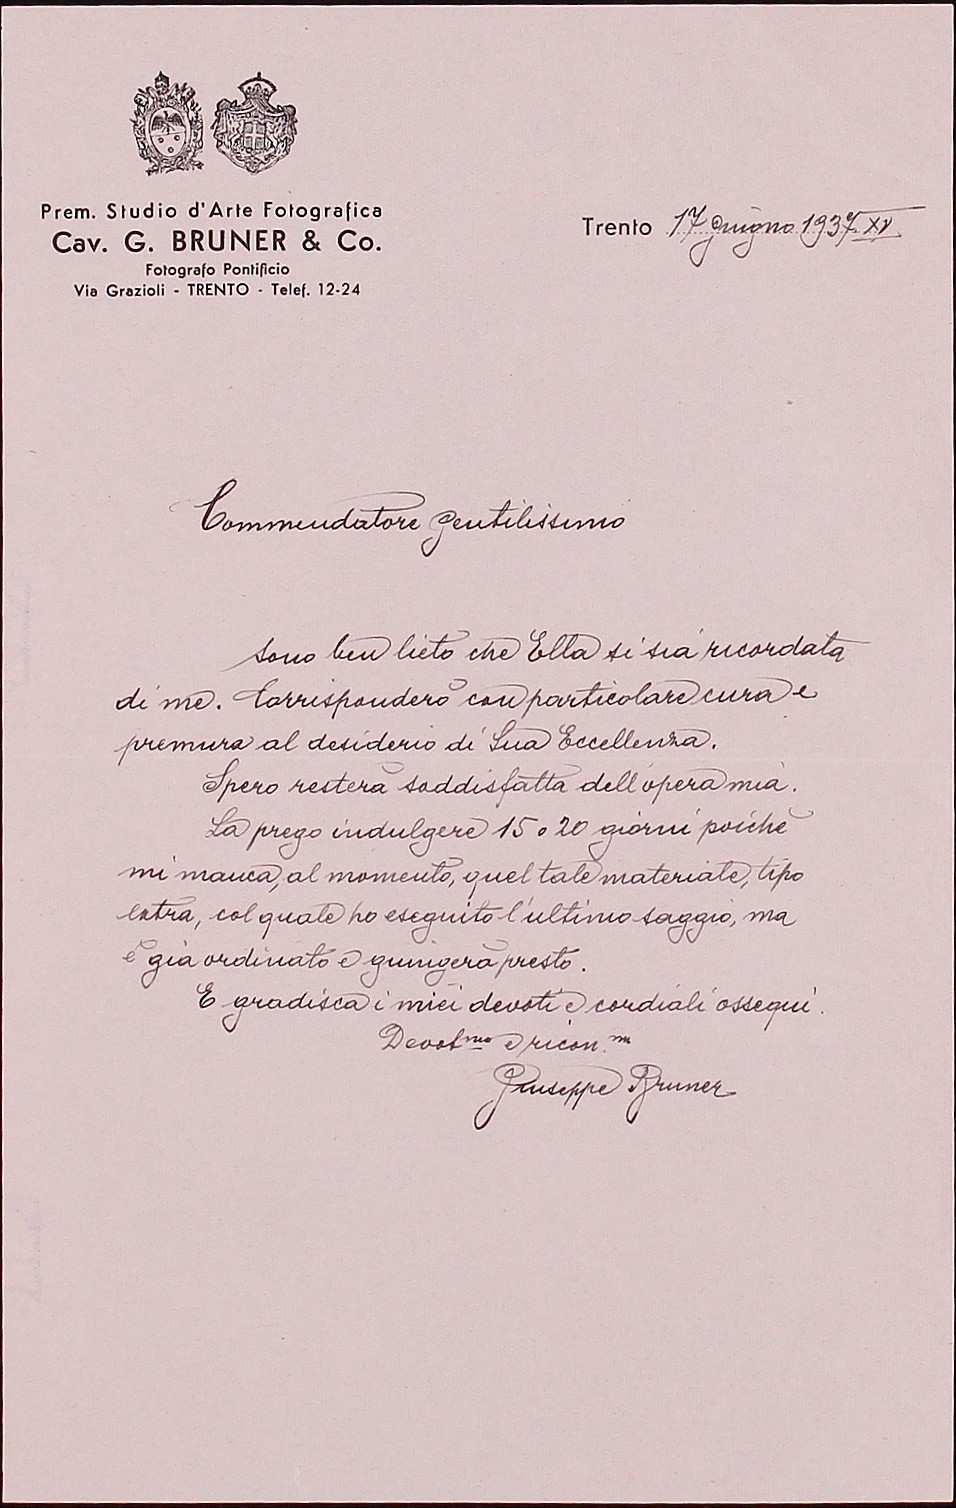 Prem. Studio d'Arte Fotografica
Cav. G. BRUNER & Co.
Fotografo Pontificio
Via Grazioli - TRENTO - Telef. 12-24
Trento 17 giugno 1937 XV
Commendatore gentilissimo
sono ben lieto che Ella si sia ricordata
di me. Corrisponderò con particolare cura e
premura al desiderio di Sua Eccellenza.
Spero resterà soddisfatta dell'opera mia.
La prego indulgere 15 o 20 giorni poichè
mi manca, al momento, quel tale materiale, tipo
extra, col quale ho eseguito l'ultimo saggio, ma
è già ordinato e giungerà presto.
E gradisca i miei devoti e cordiali ossequi.
Devot.mo e ricon.m
Giuseppe Bruner